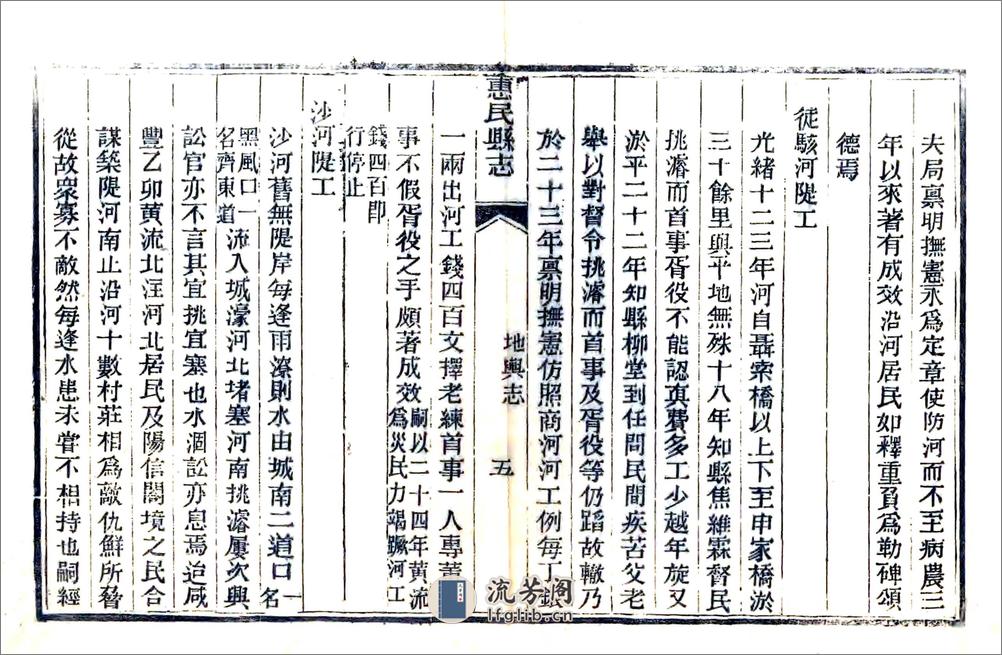 夫局稟明撫憲永爲定章使防河而不至病農三
年以來著有成效沿河居民如釋重負爲勒碑頌
德焉
徒駭河隄工
光緒十二三年河自聶索橋以上下至申家橋淤
三十餘里與平地無殊十八年知縣焦維霖督民
挑濬而首事胥役不能認眞費多工少越年旋又
淤平二十二年知縣柳堂到任問民間疾苦父老
舉以對督令挑濬而首事及胥役等仍蹈故轍乃
於二十三年稟明撫憲仿照商河河工例每丁銀
惠民縣志
地輿志
五
一兩出河工錢四百文擇老練首事一人專董
事不假胥役之手頗著成效嗣以二十四年黃流
爲災民力竭蹶河工
錢四百卽
行停止
沙河隄工
沙河舊無隄岸每逢雨潦則水由城南二道口一名
黑風口一
名齊東道流入城濠河北堵塞河南挑濬屢次興
訟官亦不言其宜挑宜塞也水涸訟亦息焉迨咸
豐乙卯黃流北注河北居民及陽信闔境之民合
謀築隄河南止沿河十數村莊相爲敵仇鮮所脅
從故衆寡不敵然每逢水患未嘗不相持也嗣經
流芳阁
lfglib.cn